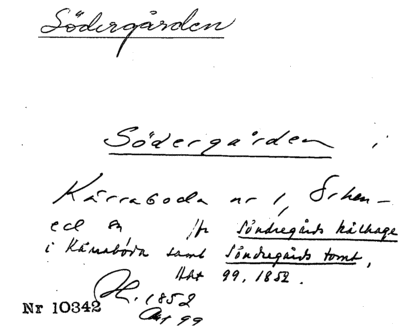 Södergården
Södergården i
Kärraboda nr 1, Örken-
ed sn /fr Söndregårds kålhage
i Kärraboda samt Söndregårds tomt,
Akt 99, 1852.
H. 1852
Akt 99
Nr 10342